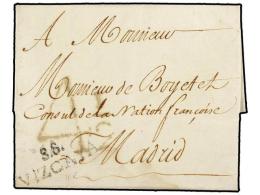 A Monsieur
Monsieur de Boyetet
Consul de la Nation françoise
S.S.
VIZCAYA
Madrid